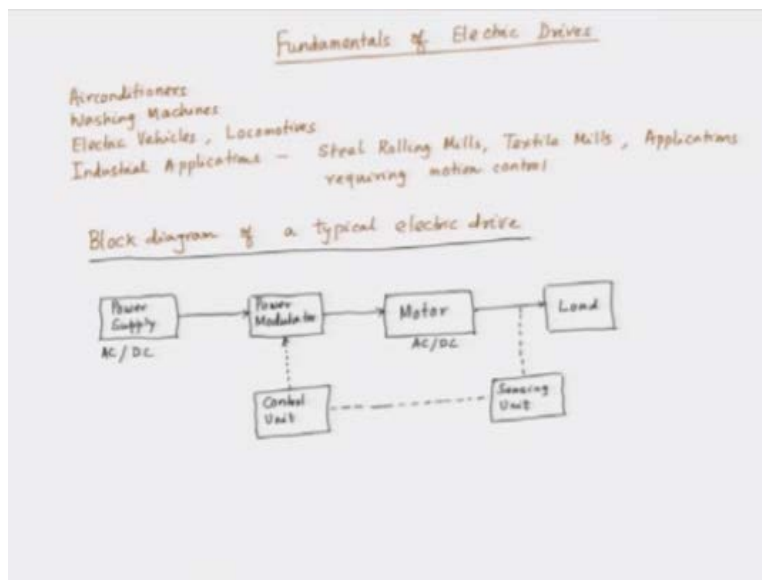 Fundamentals of Electric Drives
Airconditioners
Washing Machines
Electric Vehicles, Locomotives
Industrial Applications - Steel Rolling Mills, Textile Mills, Applications
requiring motion control
Block diagram of a typical electric drive
Power
Supply
AC/DC
Power
Modulator
Motor
AC/DC
Load
Control
Unit
Sensing
Unit